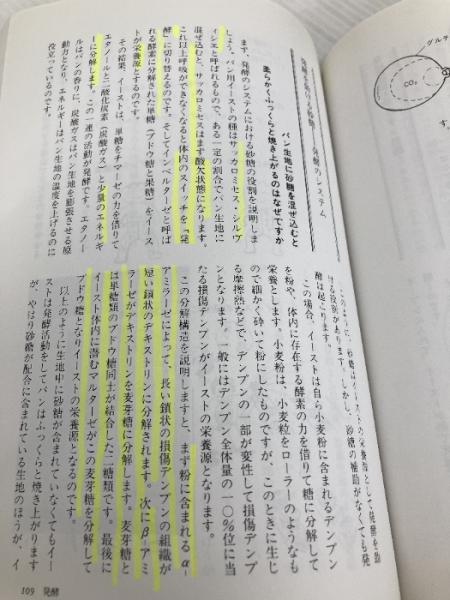 グルテ
CO₂
発酵のシステム
パン生地に砂糖を混ぜ込むと
柔らかくふっくらと焼き上がるのはなぜですか
まず、発酵のシステムにおける砂糖の役割を説明しま
しょう。パン用イーストの種はサッカロミセス・シルヴ
ィシエと呼ばれるもので、ある一定の割合でパン生地に
混ぜ込むと、サッカロミセスはまず酸欠状態になります。
これ以上呼吸ができなくなると体内のスイッチを「発
酵」に切り替えるのです。そしてインベルターゼと呼ば
れる酵素に分解された単糖（ブドウ糖と果糖）をイース
トが栄養源とするのです。
その結果、イーストは、単糖をチマーゼの力を借りて
エタノールと二酸化炭素（炭酸ガス）と少量のエネルギ
ーに分解します。この一連の活動が発酵です。エタノー
ルはパンの香りに、炭酸ガスはパン生地を膨張させる原
動力となり、エネルギーはパン生地の温度を上げるのに
役立っているのです。
このように、砂糖はイーストの栄養源として発酵を助
ける役割もあります。しかし、砂糖の補助がなくても発
酵は起こります。
この場合、イーストは自ら小麦粉に含まれるデンプン
を粉や、体内に存在する酵素の力を借りて糖に分解して
栄養とします。小麦粉は、小麦粒をローラーのようなも
ので細かく砕いて粉にしたものですが、このときに生じ
る摩擦熱などで、デンプンの一部が変性して損傷デンプ
ンとなります。一般にはデンプン全体量の一〇％位に当
たる損傷デンプンがイーストの栄養源となります。
この分解構造を説明しますと、まず粉に含まれるα-
アミラーゼによって、長い鎖状の損傷デンプンの組織が
短い鎖状のデキストリンに分解されます。次にβ-アミ
ラーゼがデキストリンを麦芽糖に分解します。麦芽糖と
は単糖類のブドウ糖同士が結合した二糖類です。最後に
イースト体内に潜むマルターゼがこの麦芽糖を分解して
ブドウ糖となりイーストの栄養源となるのです。
以上のように生地中に砂糖が含まれていなくてもイー
ストは発酵活動をしてパンはふっくらと焼き上がります
が、やはり砂糖が配合に含まれている生地のほうが、イ
109 発酵